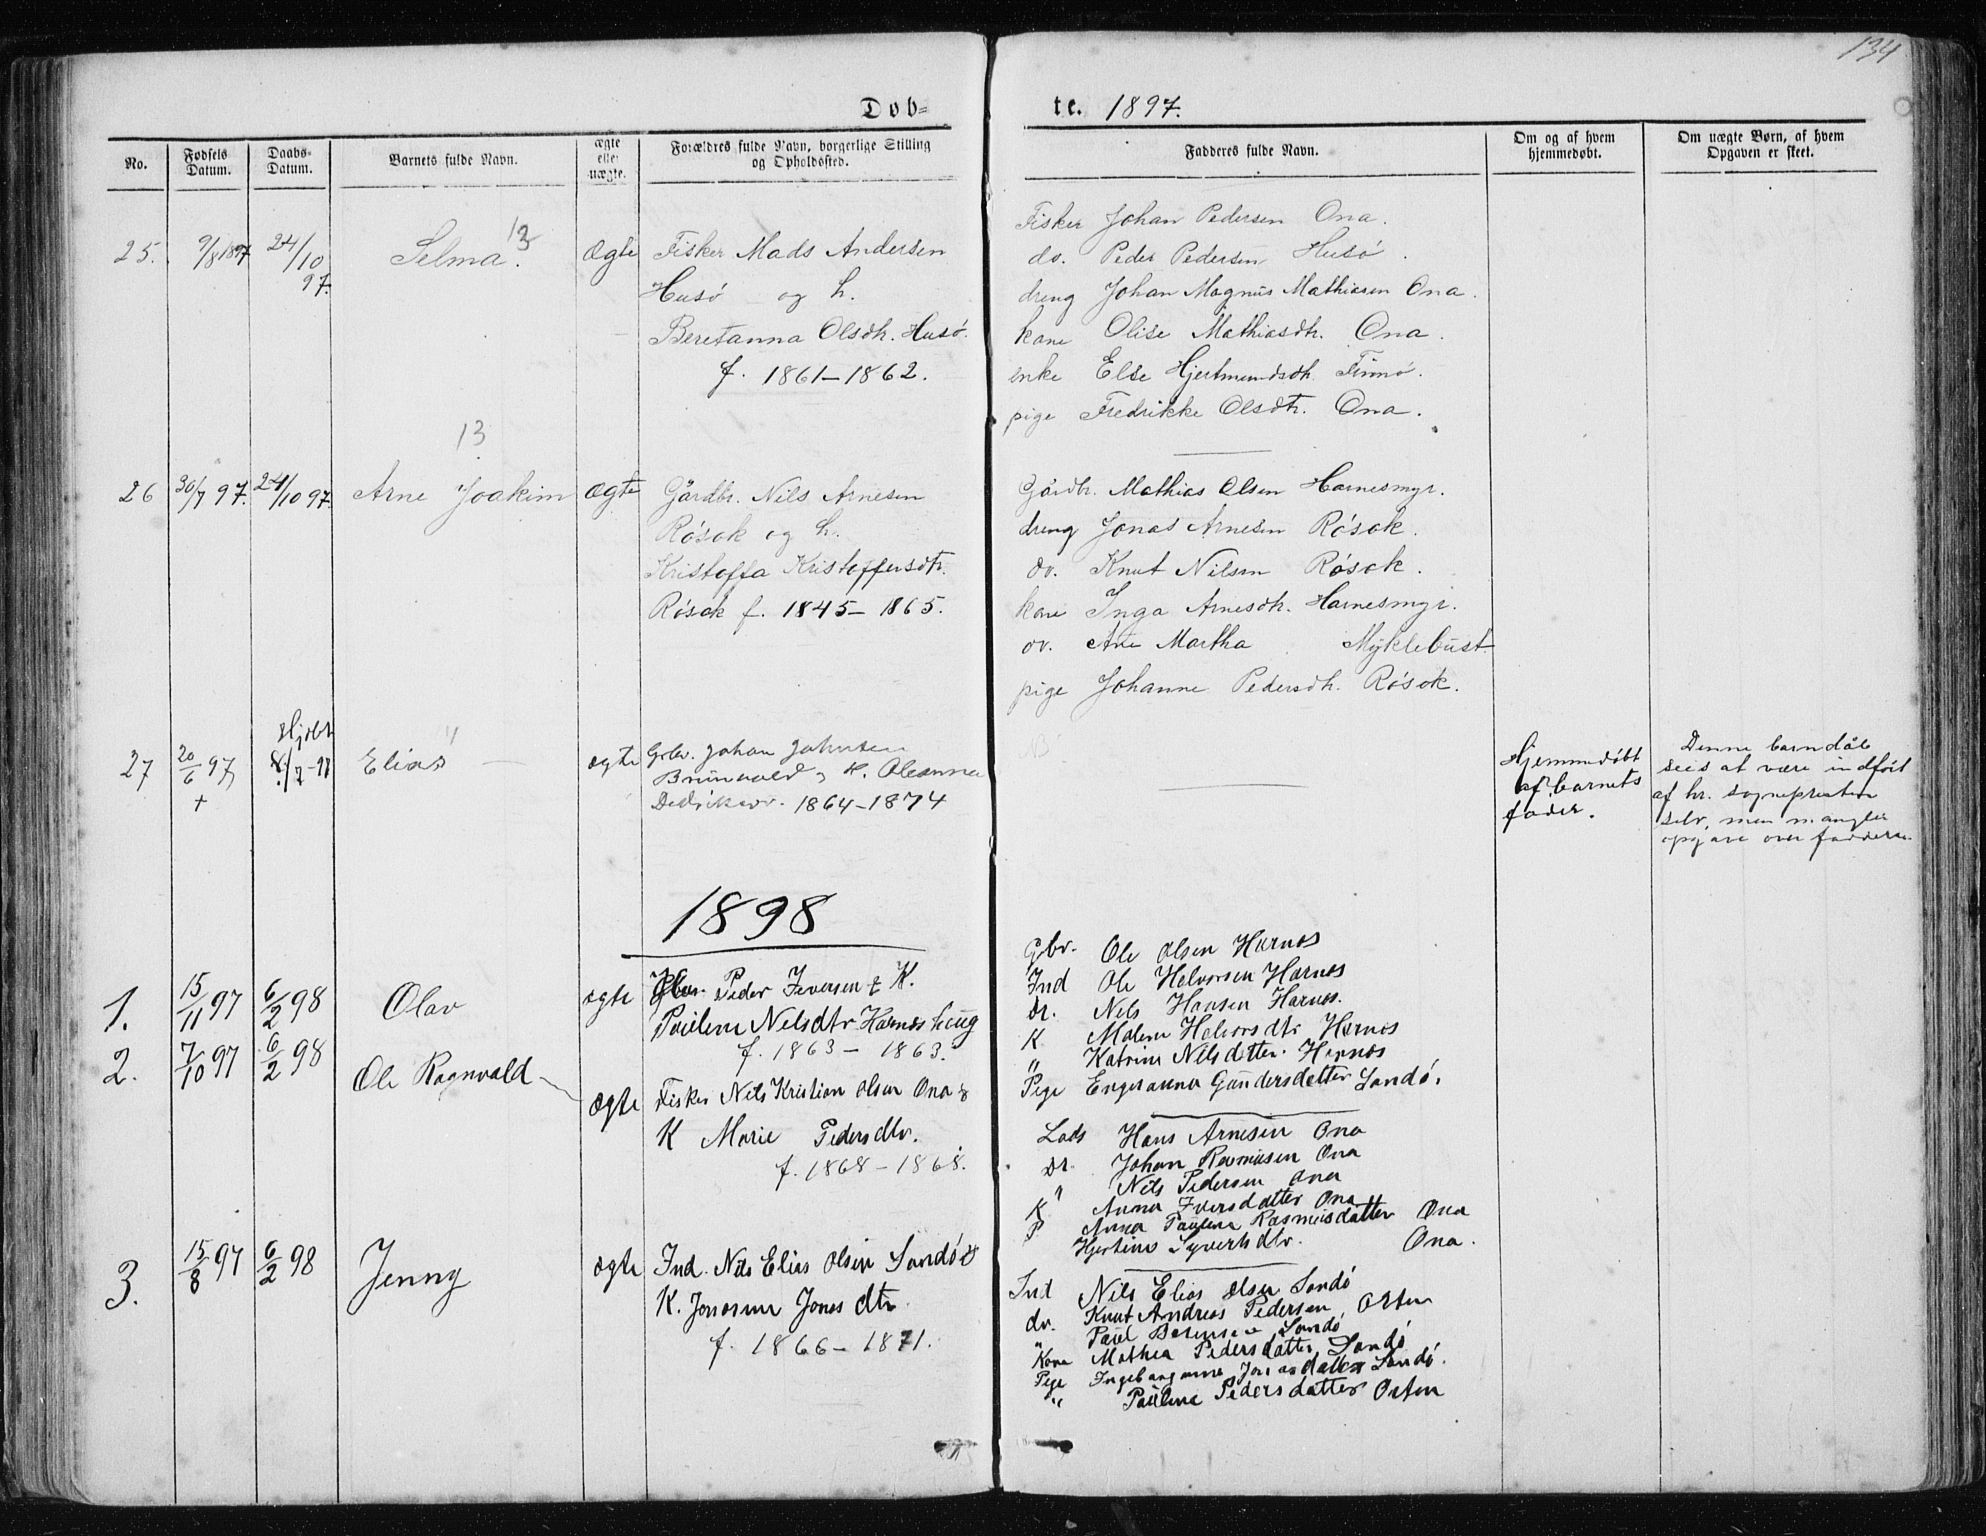 134
Døb=
te. 1897.
No.
Fødsels Datum.
Daabs-Datum.
Barnets fulde Navn.
ægte eller uægte.
Forældres fulde Navn, borgerlige Stilling
og Opholdssted.
Fadderes fulde Navn.
Om og af hvem
hjemmedøbt.
Om uægte Børn, af hvem
Opgaven er skeet.
25. 9/8 1897 24/10 97. Selma. 13 Ægte
Fisker Mads Andersen
Husø og h.
Beretanna Olsdtr. Husø.
f. 1861-1862.
Fisker Johan Pedersen Ona.
do. Peder Pedersen Husø.
dreng Johan Magnus Mathiasen Ona.
kone Olise Mathiasdtr. Ona.
enke Else Hjertmundsdtr. Finnø.
pige Fredrikke Olsdtr. Ona.
13
26 30/7 97. 24/10 97. Arne Joakim Ægte
Gårdbr. Nils Arnesen
Røsok og h.
Kristoffa Kristoffersdtr.
Røsok f. 1845-1865.
Gårdbr. Mathias Olsen Harnesmyr.
dreng Jonas Arnesen Røsok.
do. Knut Nilsen Røsok.
kone Inga Arnesdtr. Harnesmyr.
do. Ane Martha Myklebust
pige Johanne Pedersdtr. Røsok.
27 20/6 97 + Hjdbt 8/7-97 Elias ægte
Grbr. Johan Johnsen
Brunvold og K. Oleanna
Dedriksdr. 1864-1874
Hjemmedøbt
af barnets
fader.
Denne barndåb
sees at være indført
af hr. sognepresten
selv, men mangler
opgave over fadderne.
1898
1. 15/11 97 6/2 98 Olav ægte
Gbr. Peder Iversen & K.
Pauline Nelsdtr Harnes haug
f. 1863 - 1863.
Gbr. Ole Olsen Harnes
Ind Ole Halvorsen Harnes
Dr. Nels Hansen Harnes.
K. Malene Halvorsdtr Harnes
" Katrine Nilsdatter Harnes
Pige Engeranna Gundersdatter Sandø.
2. 7/10 97 6/2 98 Ole Ragnvald Ægte
Fisker Nils Kristian Olsen Ona &
K Marie Pedersdtr.
f. 1868-1868.
Lods Hans Arnesen Ona
Dr. Johan Rasmusen Ona
" Nils Pedersen Ona
K Anna Iversdatter Ona
P Anna Pauline Rasmusdatter Ona
Hjertine Syvertsdtr. Ona.
3. 15/8 97 6/2 98 Jenny ægte
Ind. Nils Elias Olsen Sandø &
K. Jonasine Jonasdtr.
f. 1866-1871.
Ind Nils Elias Olsen Sandø
do. Knut Andreas Pedersen Orten
" Paul Sandø
Kone Mathea Pedersdatter Sandø
Pige Ingeborganne Jonasdatter Sandø.
" Pauline Pedersdatter Orten